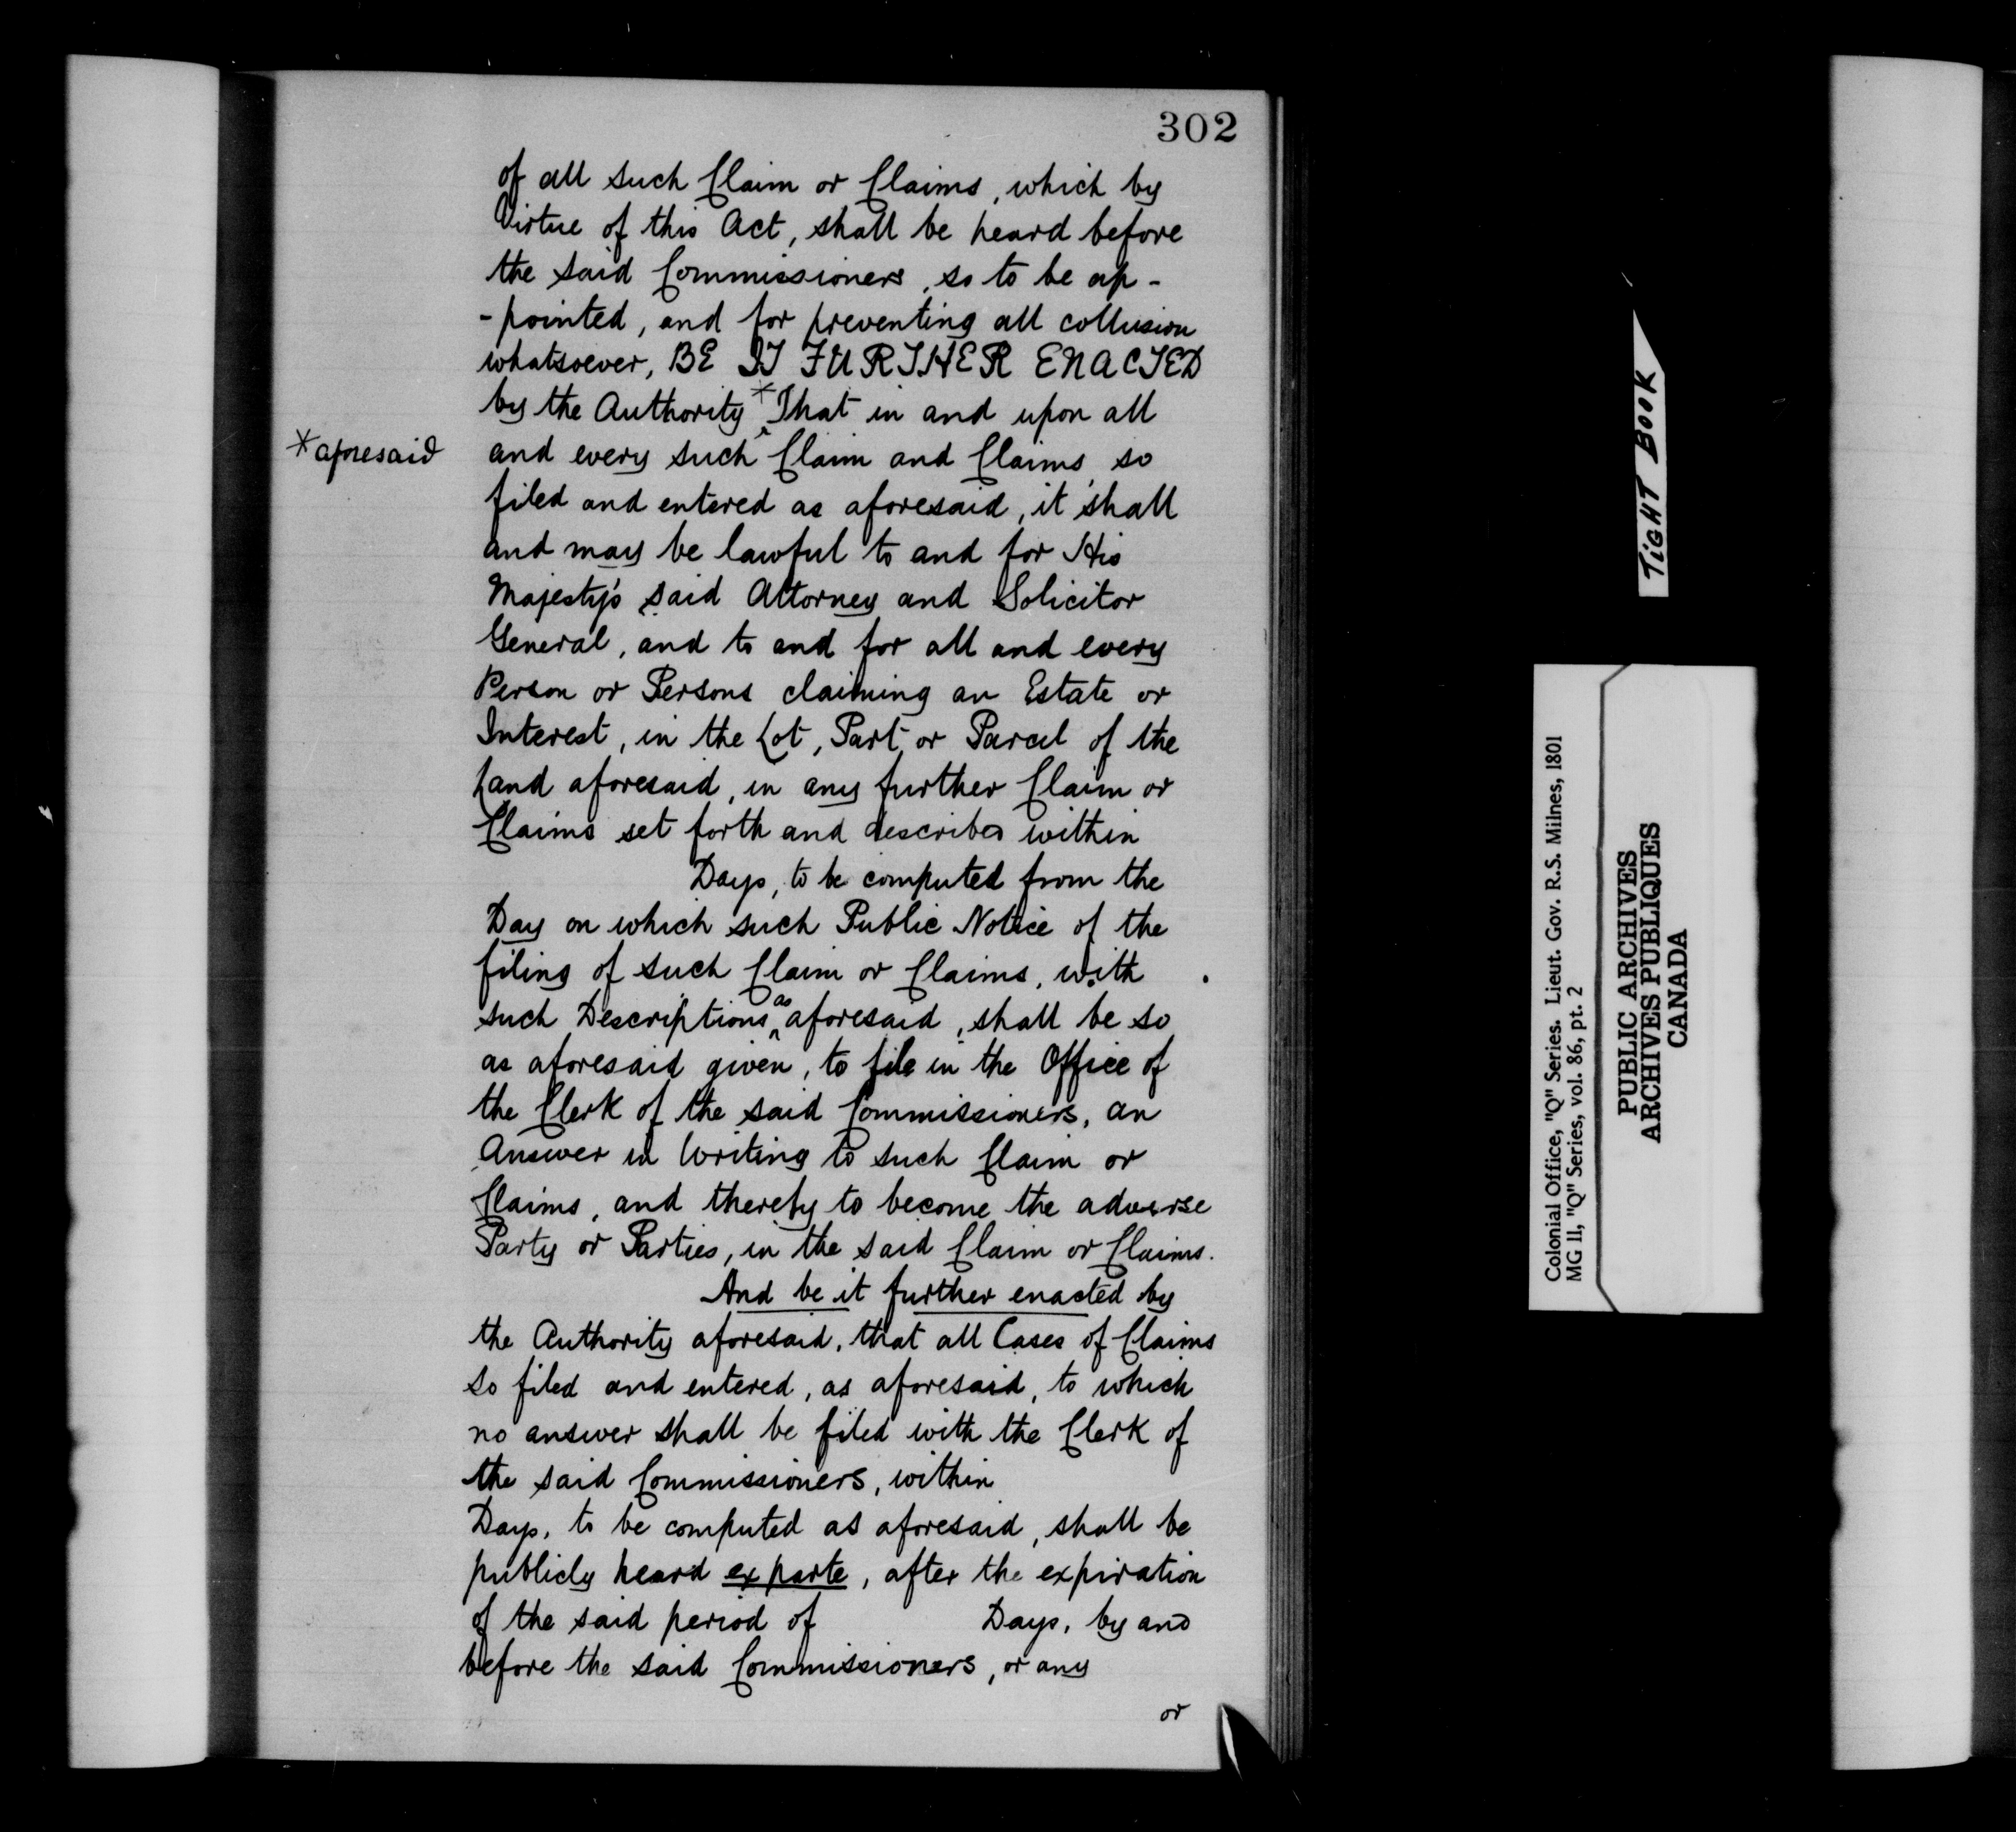 302
of all such Claim or Claims, which by
Virtue of this Act, shall be heard before
the said Commissioners, so to be ap-
-pointed, and for preventing all collusion
whatsoever, BE IT FURTHER ENACTED
by the Authority * That in and upon all
*aforesaid
and every such Claim and Claims, so
filed and entered as aforesaid, it shall
and may be lawful to and for His
Majesty's said Attorney and Solicitor
General, and to and for all and every
Person or Persons claiming an Estate or
Interest, in the Lot, Part or Parcel of the
Land aforesaid, in any further Claim or
Claims set forth and described within
Days, to be computed from the
Day on which such Public Notice of the
filing of such Claim or Claims, with
such Descriptions as aforesaid, shall be so
as aforesaid given, to file in the Office of
the Clerk of the said Commissioners, an
Answer in Writing to such Claim or
Claims, and thereby to become the adverse
Party or Parties, in the said Claim or Claims.
And be it further enacted by
the Authority aforesaid, that all Cases of Claims
so filed and entered, as aforesaid, to which
no answer shall be filed with the Clerk of
the said Commissioners, within
Days, to be computed as aforesaid, shall be
publicly heard ex parte, after the expiration
of the said period of Days, by and
before the said Commissioners, or any
or
TIGHT BOOK
Colonial Office, "Q" Series. Lieut. Gov. R.S. Milnes, 1801
MG 11, "Q" Series, vol. 86, pt. 2
PUBLIC ARCHIVES
ARCHIVES PUBLIQUES
CANADA